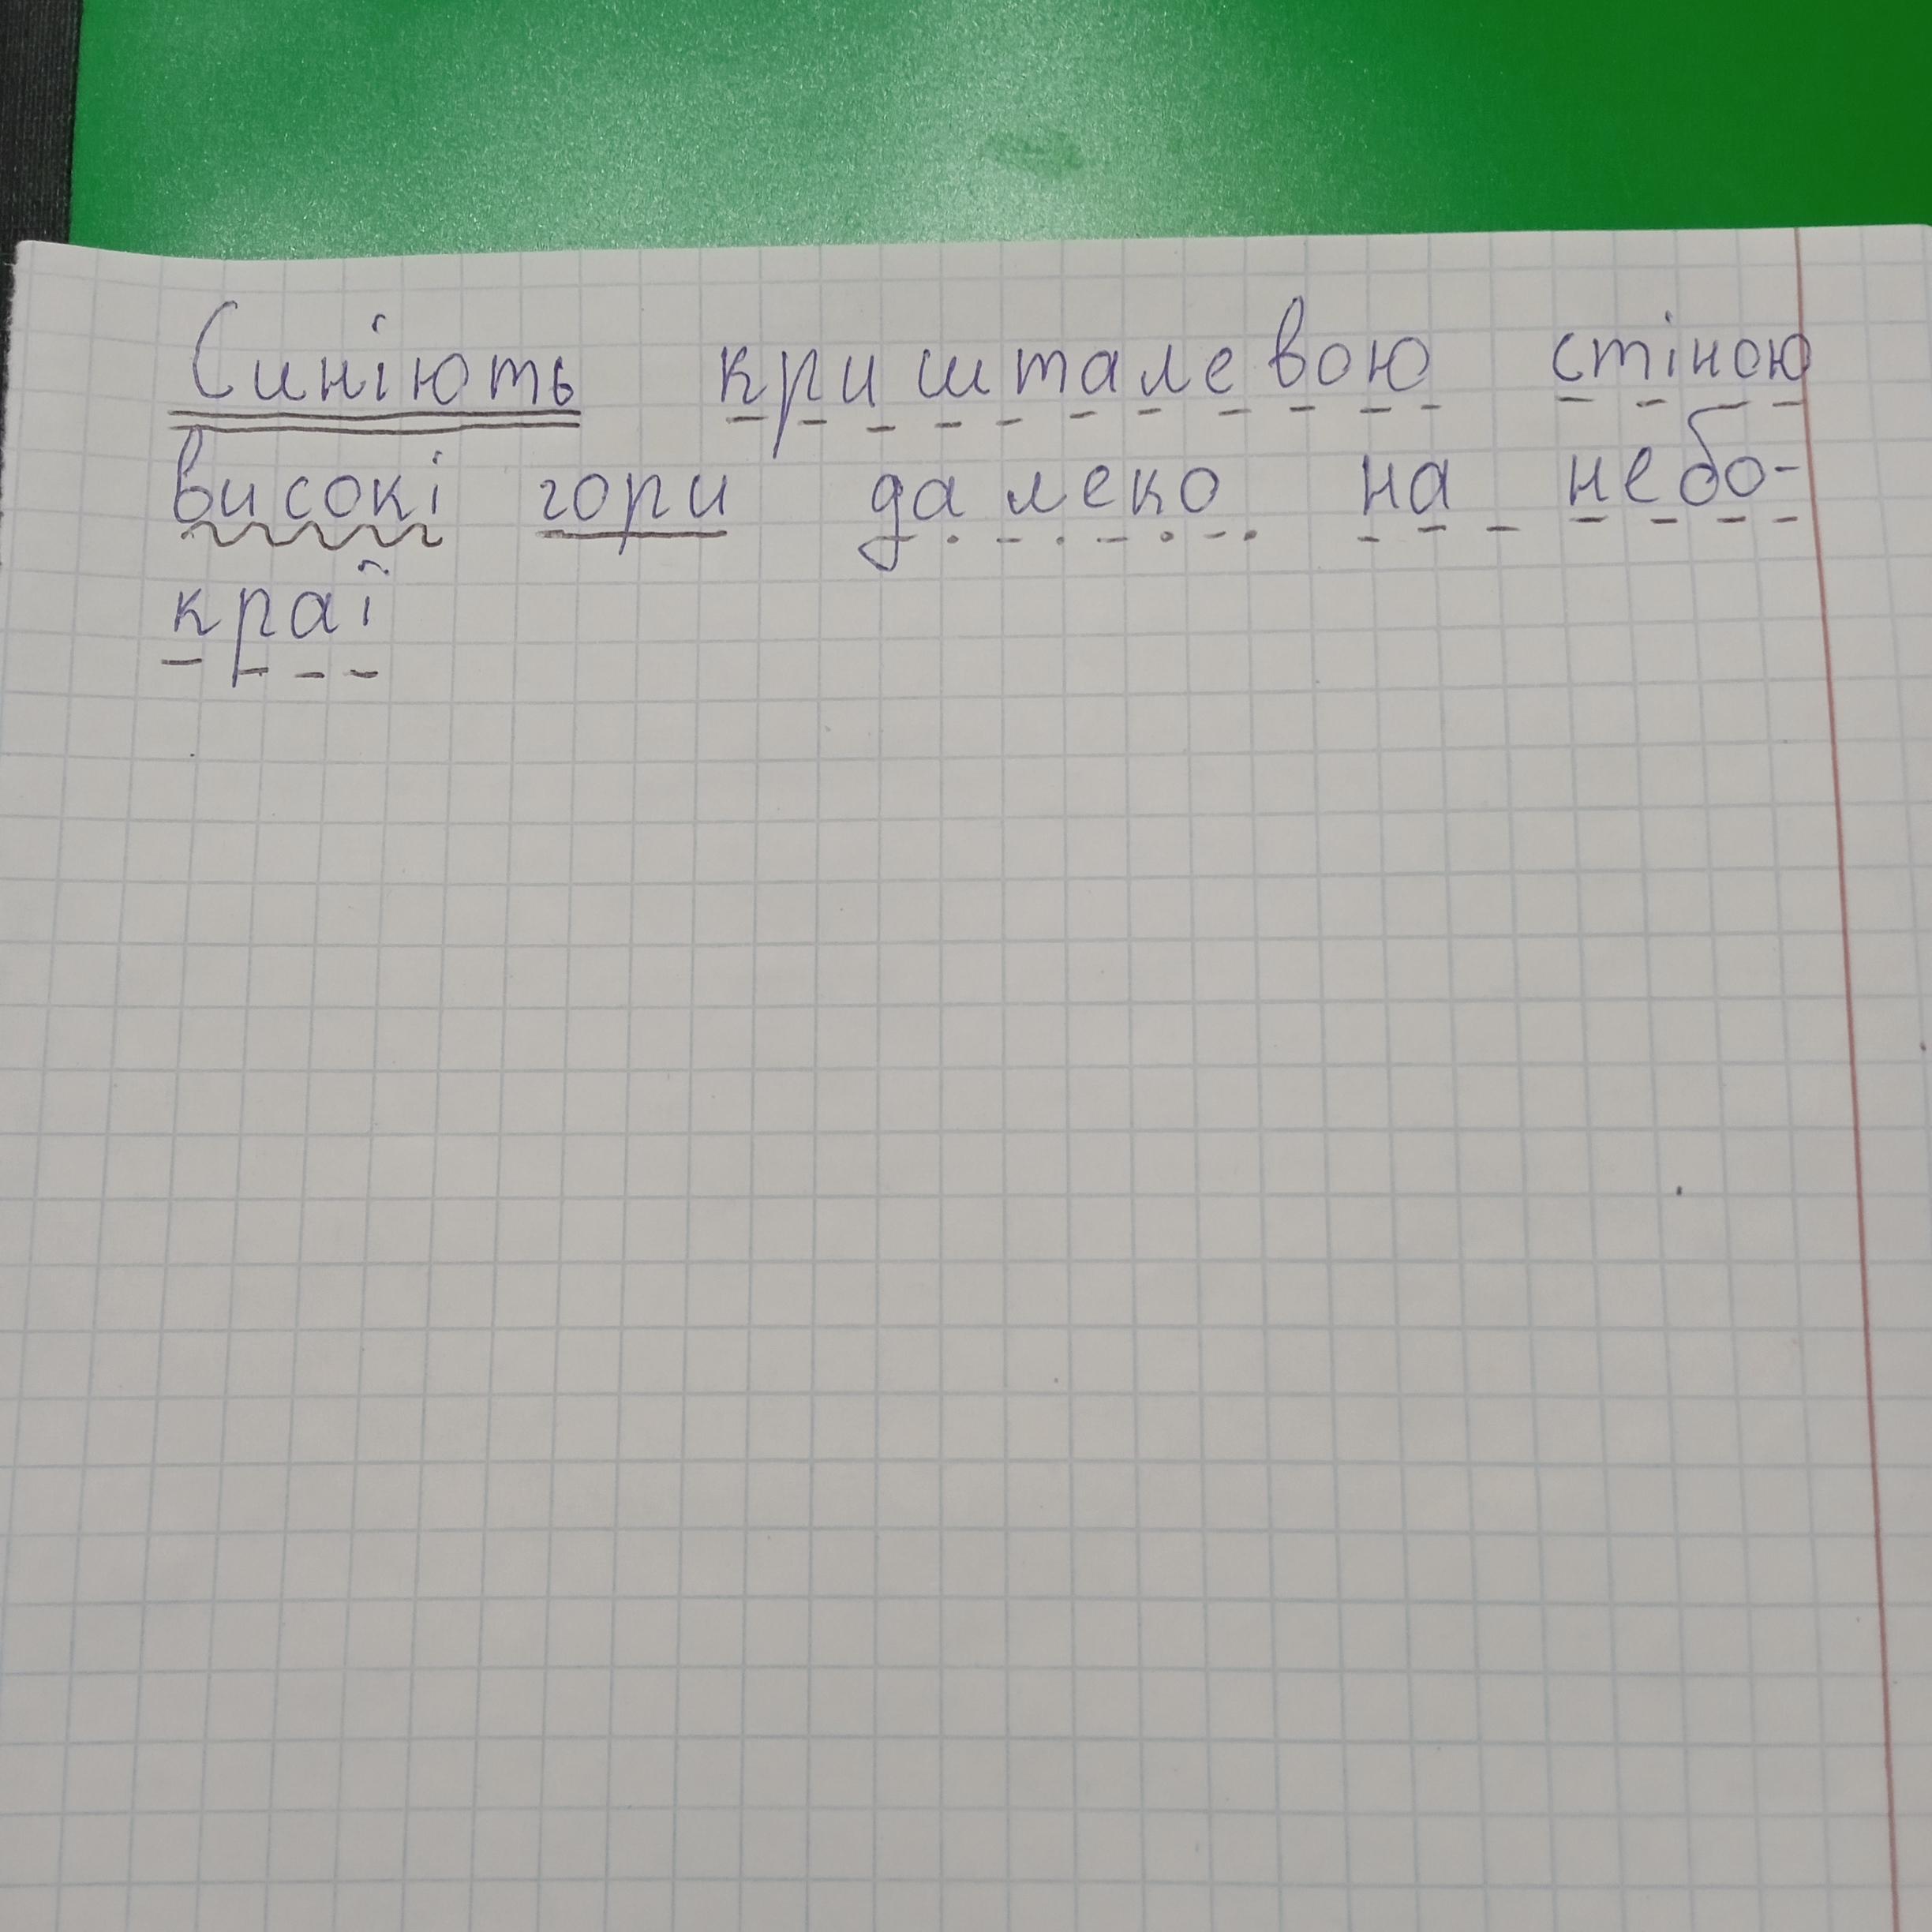 Синіють кришталевою стіною
високі гори далеко на небо-
краї